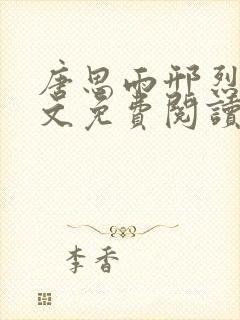 唐思雨邢烈
文免費閱讀
李香